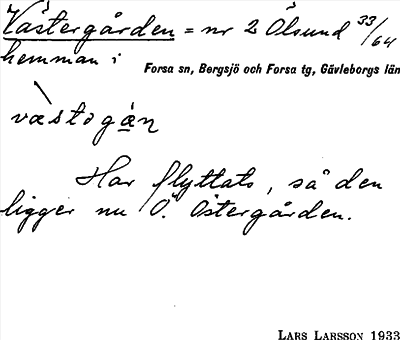 Västergården = nr 2 Ölsund 33/64
hemman i
Forsa sn, Bergsjö och Forsa tg, Gävleborgs län
væstogán
Har flyttats, så den
ligger nu Ö. Östergården.
LARS LARSSON 1933